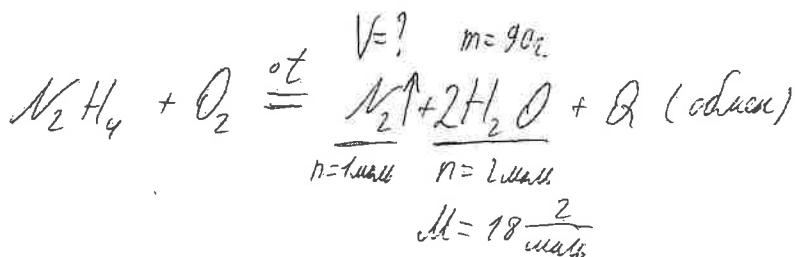 V=? m=90г
N₂H₄ + O₂ °t = N₂↑ + 2H₂O + Q (обмен)
n=1моль n=2моль
M=18 г/моль